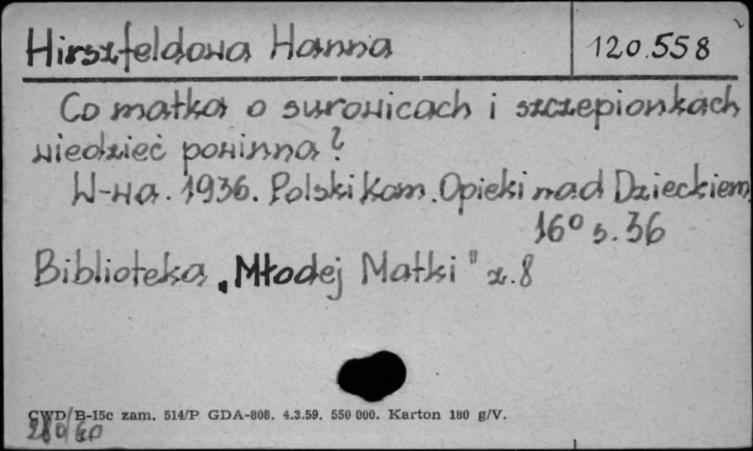 Hirszfeldowa Hanna 120.558
Co matka o surowicach i szczepionkach
wiedzieć powinna?
W-wa. 1936. Polski Kom. Opieki nad Dzieckiem
16° s. 36
Biblioteka „Młodej Matki" z. 8
CWD/B-15c zam. 514/P GDA-808. 4.3.59. 550 000. Karton 180 g/V.